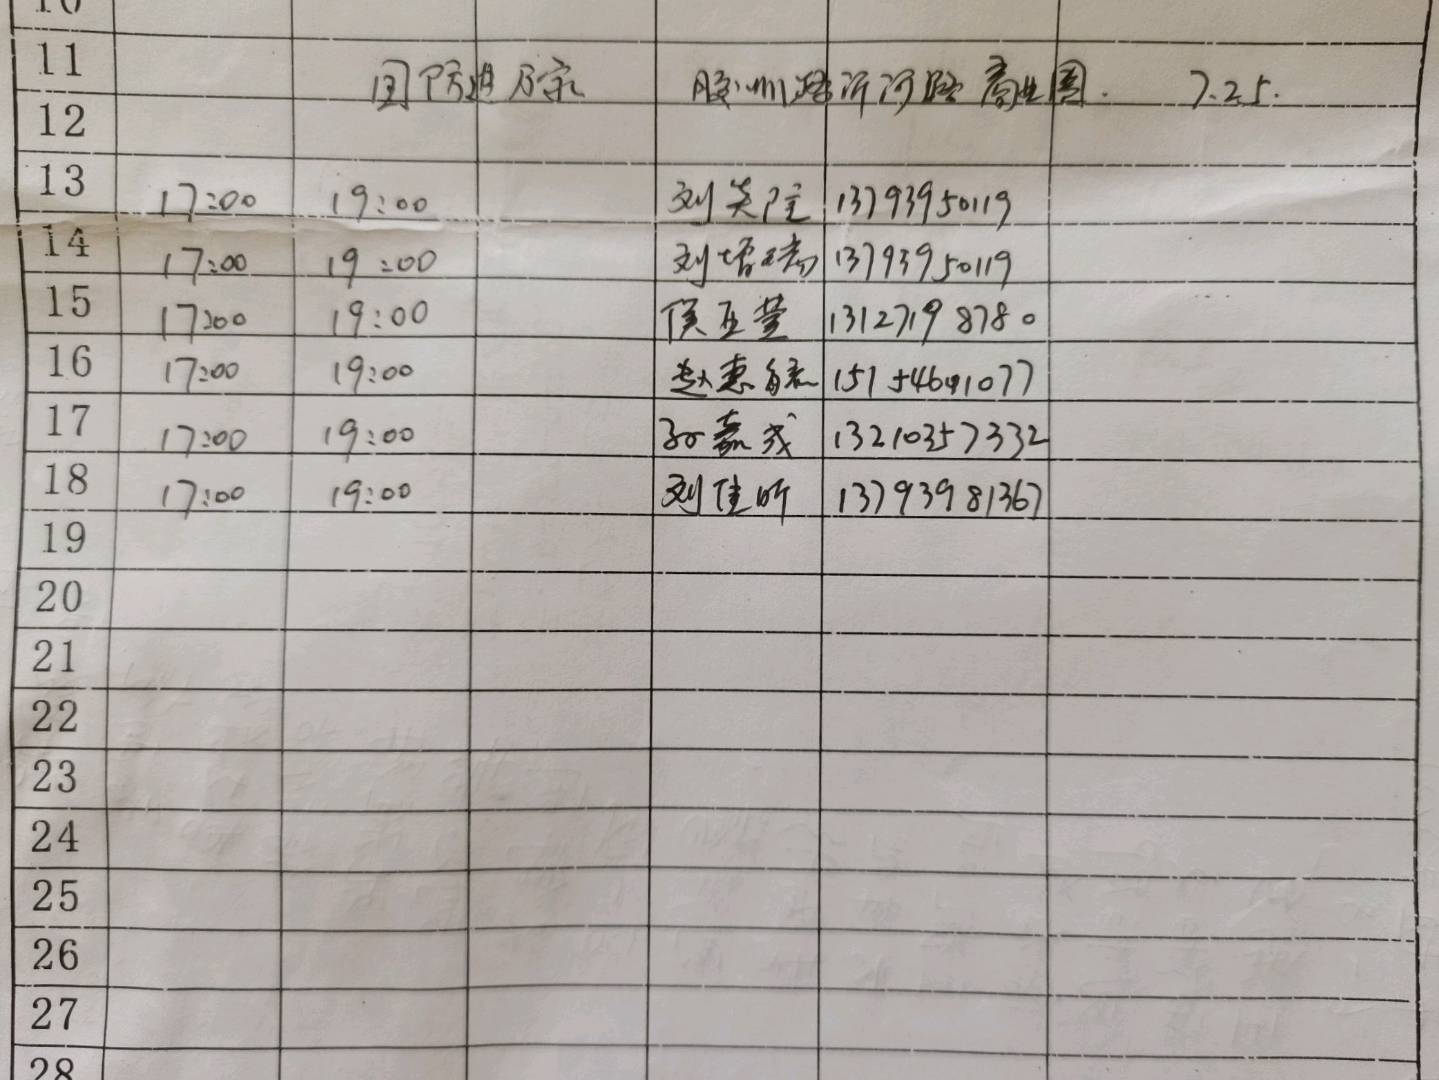 10
11 国防进万家 胶州路沂河路商业圈. 7.25.
12
13 17:00 19:00 刘关院 13793950119
14 17:00 19:00 刘培瑞 13793950119
15 17:00 19:00 侯玉莹 13127198780
16 17:00 19:00 赵惠 1515461077
17 17:00 19:00 孙嘉成 13210357332
18 17:00 19:00 刘佳昕 13793981367
19
20
21
22
23
24
25
26
27
28